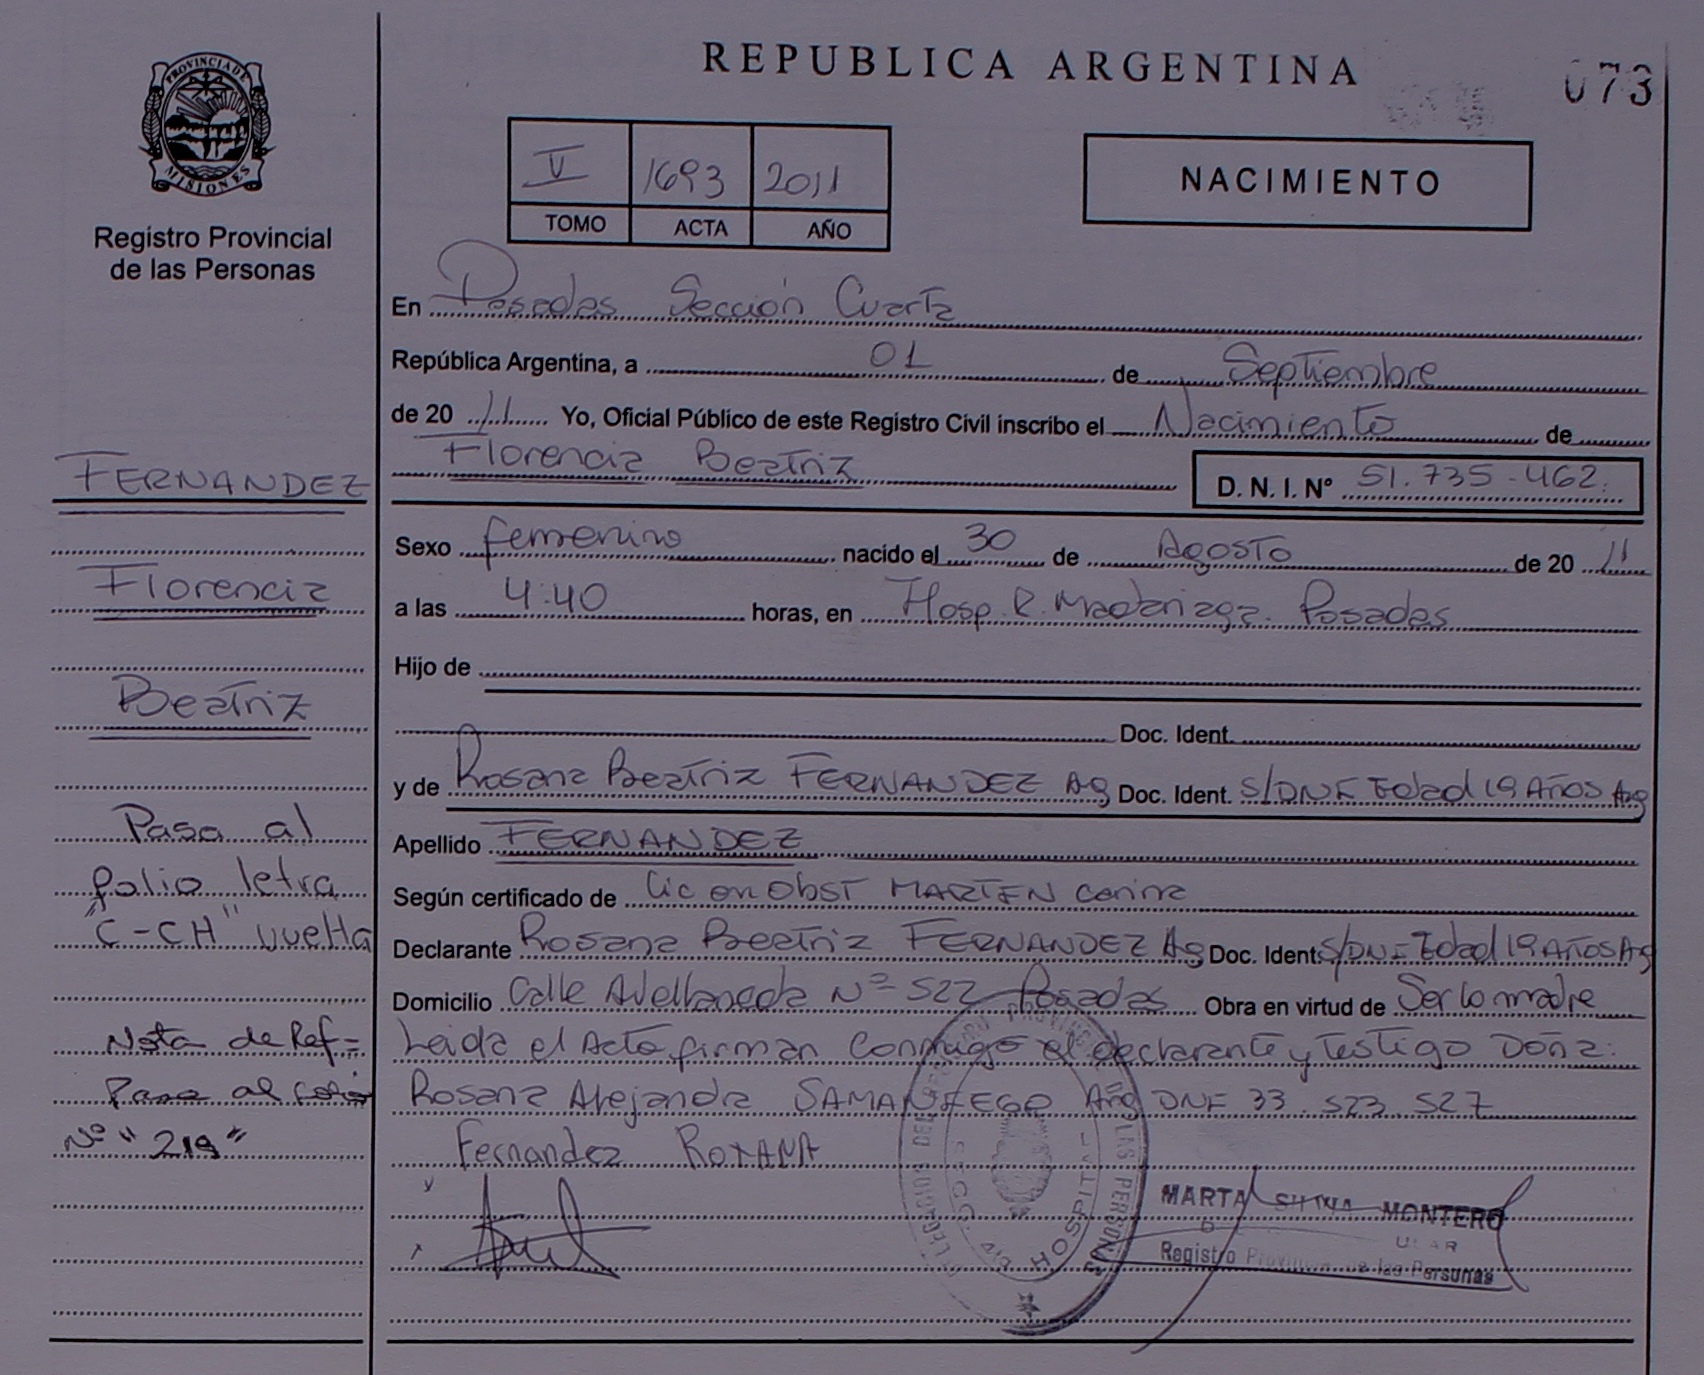 REPUBLICA ARGENTINA
073
PROVINCIA DE
MISIONES
Registro Provincial
de las Personas
V 1693 2011
TOMO ACTA AÑO
NACIMIENTO
En Posadas Sección Cuarta
República Argentina, a 01 de Septiembre
de 20 11 Yo, Oficial Público de este Registro Civil inscribo el Nacimiento de
Florencia Beatriz D. N. I. Nº 51.735.462
Sexo femenino nacido el 30 de Agosto de 20 11
a las 4:40 horas, en Hosp. R. Madariaga. Posadas
Hijo de
Doc. Ident.
y de Rosana Beatriz FERNANDEZ Ag Doc. Ident. S/DNI Edad 19 Años Arg
Apellido FERNANDEZ
Según certificado de Lic en Obst MARTEN Carina
Declarante Rosana Beatriz FERNANDEZ Ag Doc. Ident. S/DNI Edad 19 Años Ag
Domicilio Calle Avellaneda Nº 522 Posadas Obra en virtud de Ser la madre
Leida el Acta firman conmigo el declarante y testigo Doña:
Rosana Alejandra SAMANIEGO Arg DNI 33.523.527
Fernandez ROXANA
MARTA SILVINA MONTERO
Registro Provincial de las Personas
HOSPITAL
FERNANDEZ
Florencia
Beatriz
Pasa al
folio letra
"C-CH" vuelta
Nota de Ref=
Pasa al folio
Nº "219"